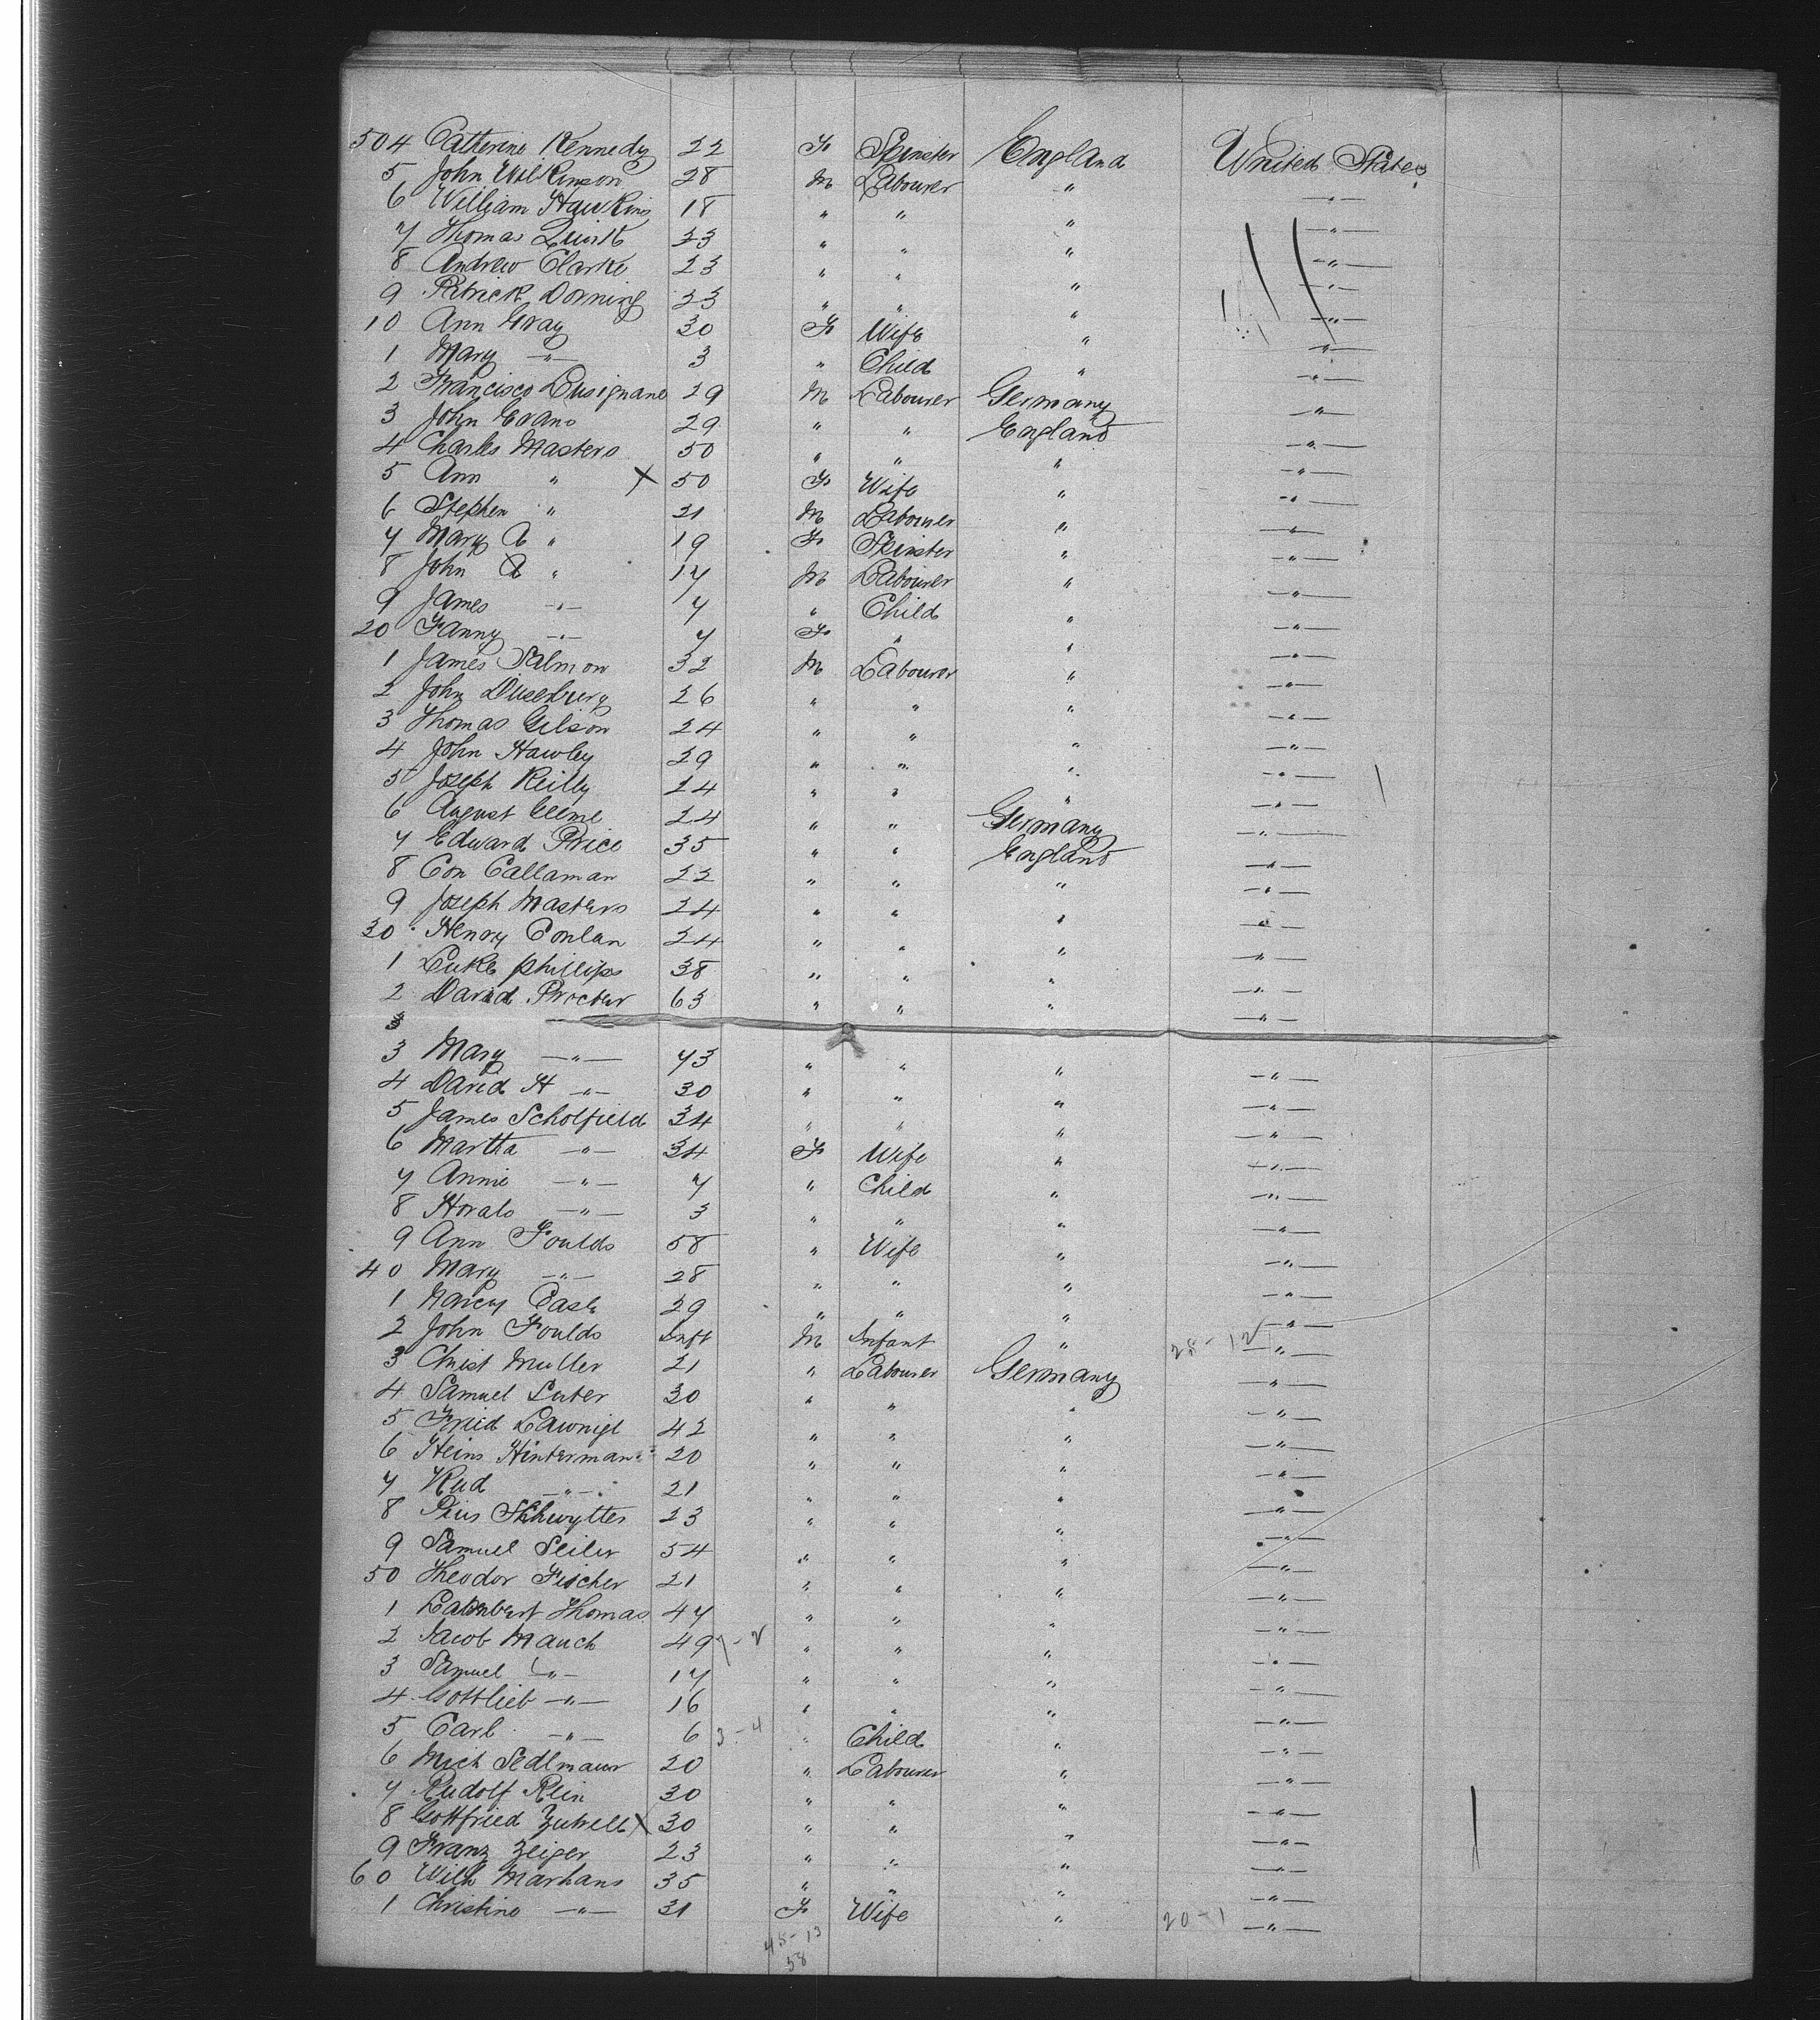 504 Catherine Kennedy 22 F Spinster England United States
5 John Wilkinson 28 M Labourer " — " —
6 William Hawkins 18 " " " — " —
7 Thomas Quirk 23 " " " — " —
8 Andrew Clarke 23 " " " — " —
9 Patrick Dorning 23 " " " — " —
10 Ann Gray 30 F Wife " — " —
1 Mary — " — 3 " Child " — " —
2 Francisco Lusignano 29 M Labourer Germany — " —
3 John Evans 29 " " England — " —
4 Charles Masters 50 " " " — " —
5 Ann " X 50 F Wife " — " —
6 Stephen " 21 M Labourer " — " —
7 Mary A " 19 F Spinster " — " —
8 John A " 17 M Labourer " — " —
9 James — " — 7 " Child " — " —
20 Fanny — " — 7 F " " — " —
1 James Salmon 32 M Labourer " — " —
2 John Duserbury 26 " " " — " —
3 Thomas Gilson 24 " " " — " —
4 John Hawley 29 " " " — " —
5 Joseph Reilly 24 " " " — " —
6 August 24 " " Germany — " —
7 Edward Price 35 " " England — " —
8 Con Callaman 22 " " " — " —
9 Joseph Masters 24 " " " — " —
30 Henry Conlan 24 " " " — " —
1 Luke phillips 38 " " " — " —
2 David Procter 63 " " " — " —
3
3 Mary — " — 73 " " " — " —
4 David H — " — 30 " " " — " —
5 James Scholfield 34 " " " — " —
6 Martha — " — 34 F Wife " — " —
7 Annie — " — 7 " Child " — " —
8 Horals — " — 3 " " " — " —
9 Ann Foulds 58 " Wife " — " —
40 Mary — " — 28 " " " — " —
1 Nancy Cash 29 " " " — " —
2 John Foulds Inft M Infant " 28-12 — " —
3 Christ Muller 21 " Labourer Germany — " —
4 Samuel Luter 30 " " " — " —
5 Fried 42 " " " — " —
6 Heins Hinterman 20 " " " — " —
7 Rud — " — 21 " " " — " —
8 Pius Schwytter 23 " " " — " —
9 Samuel Seiler 54 " " " — " —
50 Theodor Fischer 21 " " " — " —
1 Lambert Thomas 47 " " " — " —
2 Jacob Mauch 49 7-2 " " " — " —
3 Samuel — " — 17 " " " — " —
4 Gottlieb — " — 16 " " " — " —
5 Carl — " — 6 3-4 " Child " — " —
6 Mich Sedlmauer 20 " Labourer " — " —
7 Rudolf Rein 30 " " " — " —
8 Gottfried X 30 " " " — " —
9 Franz Zeiger 23 " " " — " —
60 Wilh Marhans 35 " " " — " —
1 Christine — " — 31 F Wife " 20-1 — " —
45-13
58